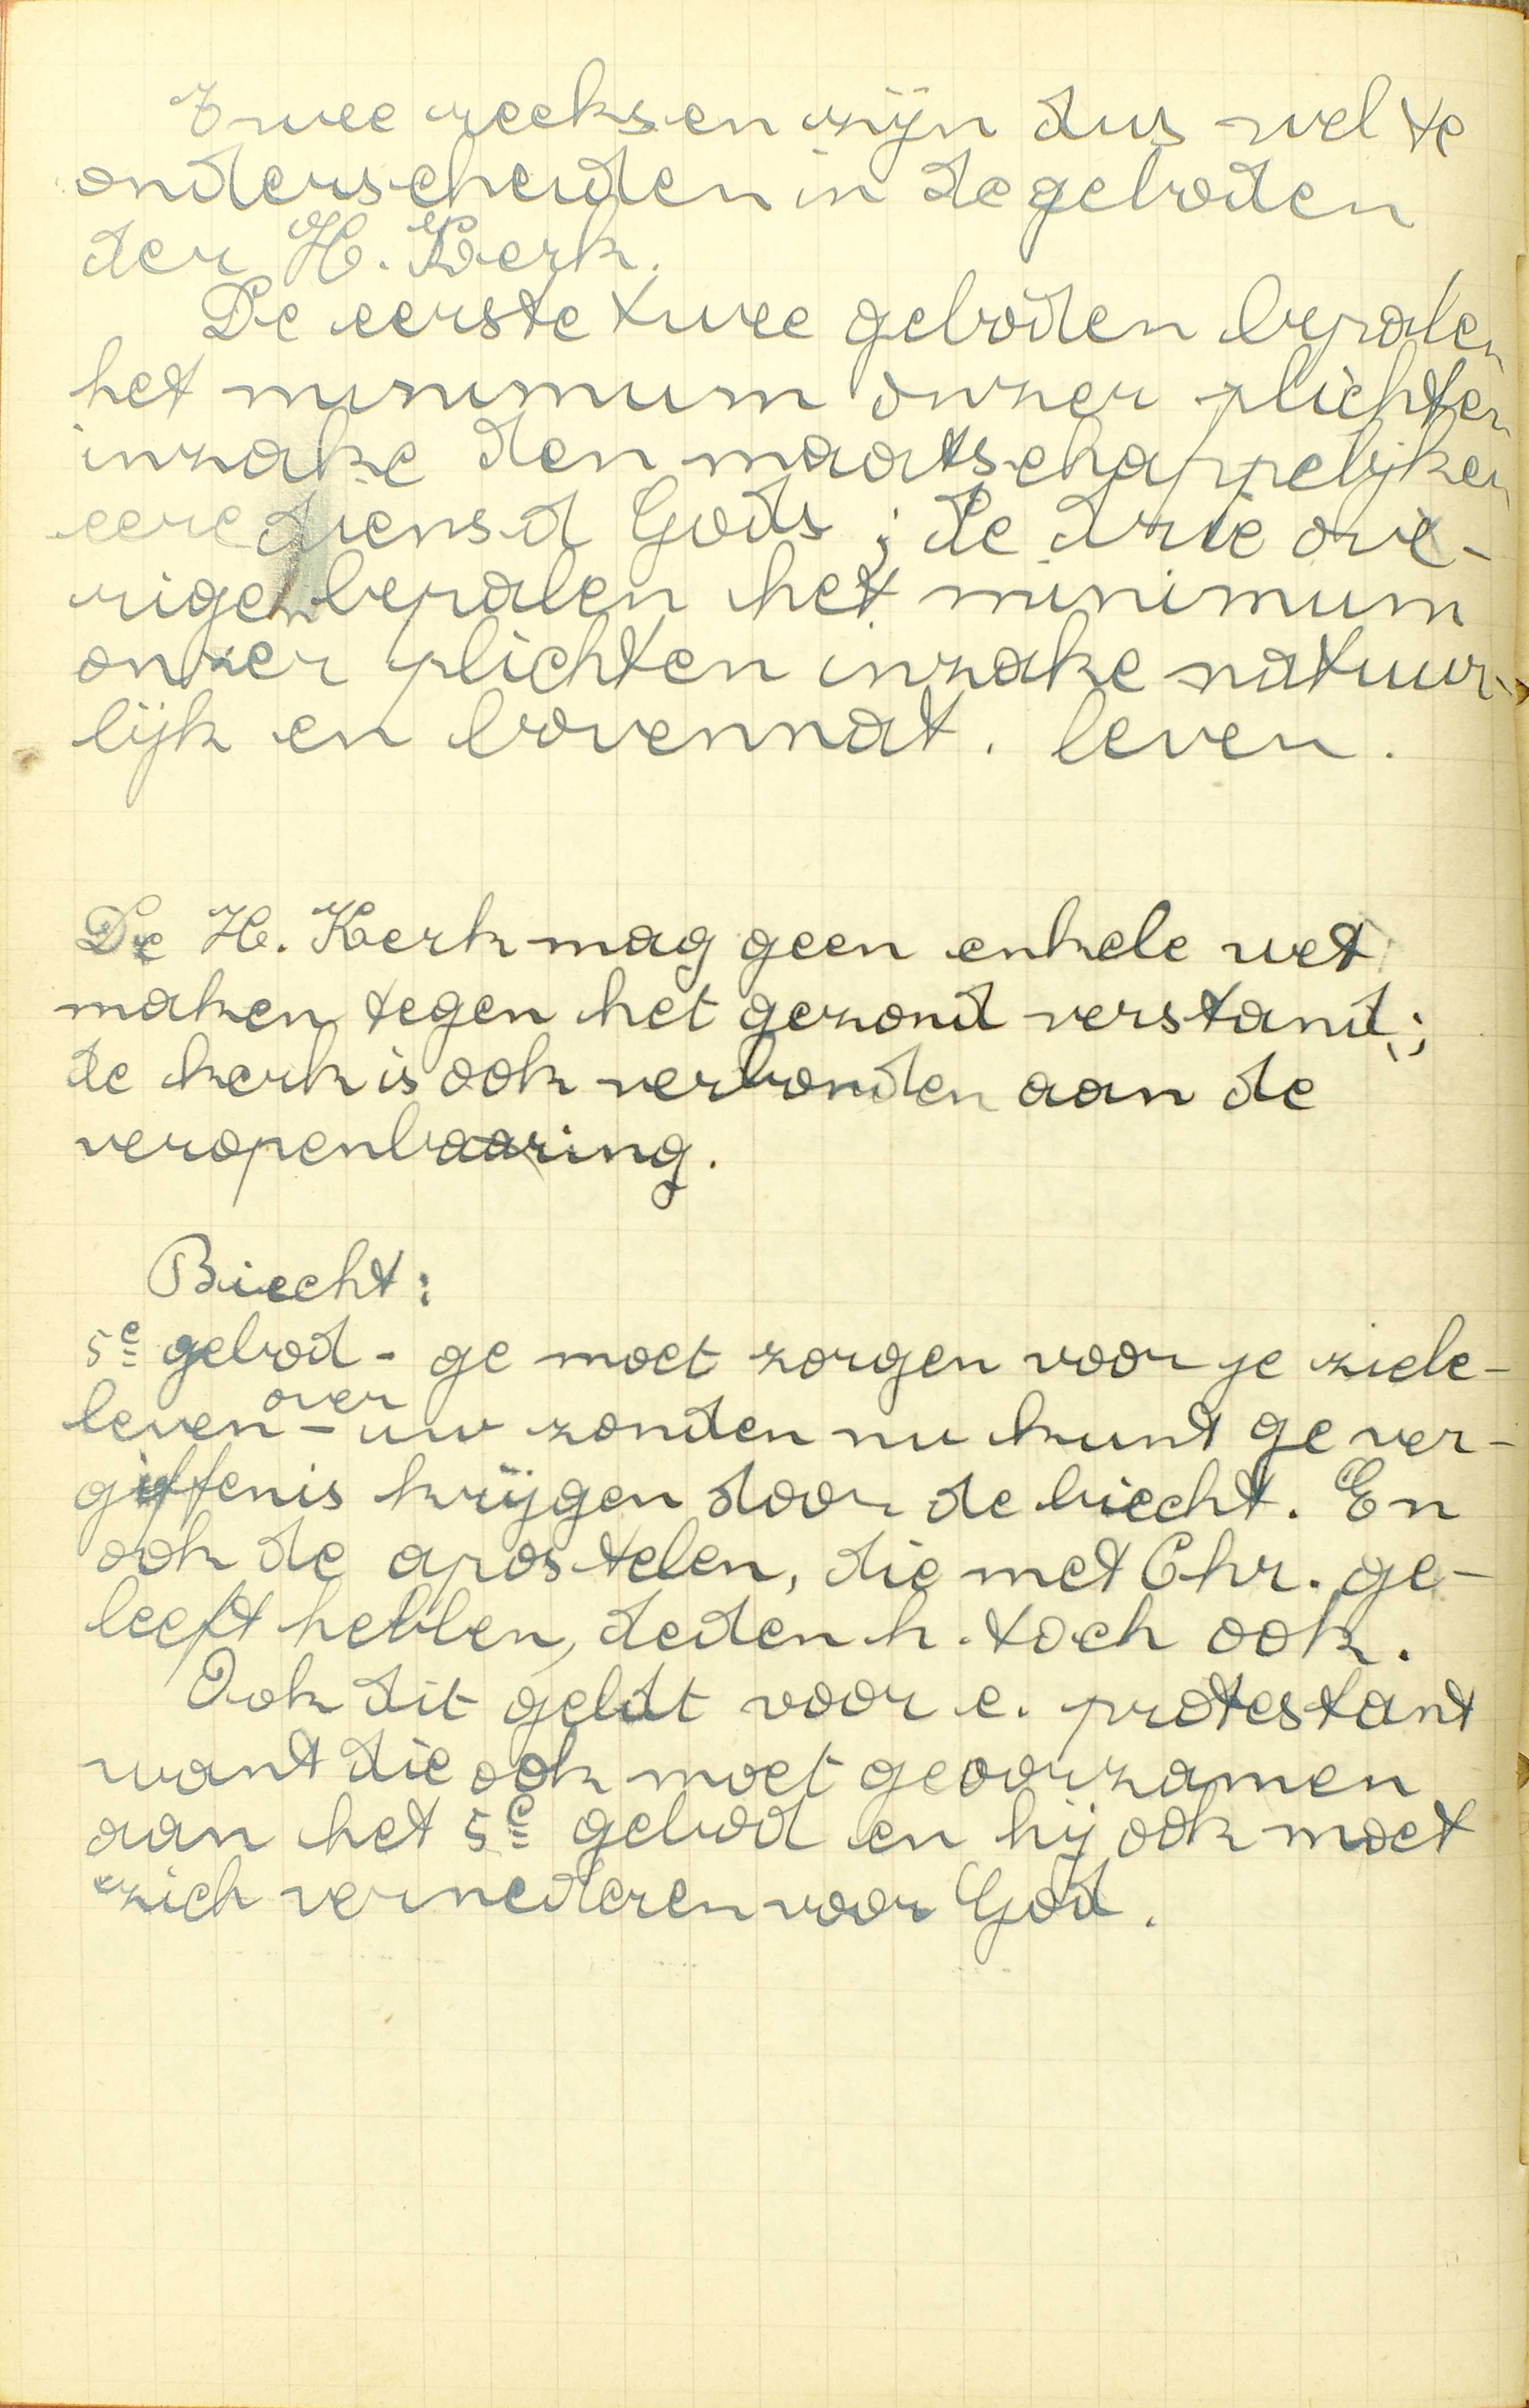 Twee reeksen zijn dus wel te
onderscheiden in de geboden
der H. Kerk.
De eerste twee geboden bepalen
het minimum onzer plichten
inzake den maatschappelijken
eeredienst Gods ; de drie ove-
rigen bepalen het minimum
onzer plichten inzake natuur-
lijk en bovennat. leven.
De H. Kerk mag geen enkele wet
maken tegen het gezond verstand;
de kerk is ook verbonden aan de
veropenbaaring.
Biecht:
5e gebod - ge moet zorgen voor je ziele-
leven - over uw zonden nu kunt ge ver-
giffenis krijgen door de biecht. En
ook de apostelen, die met Chr. ge-
leeft hebben, deden h. toch ook.
Ook dit geldt voor e. protestant
want die ook moet geoorzamen
aan het 5e gebod en hij ook moet
zich vernederen voor God.